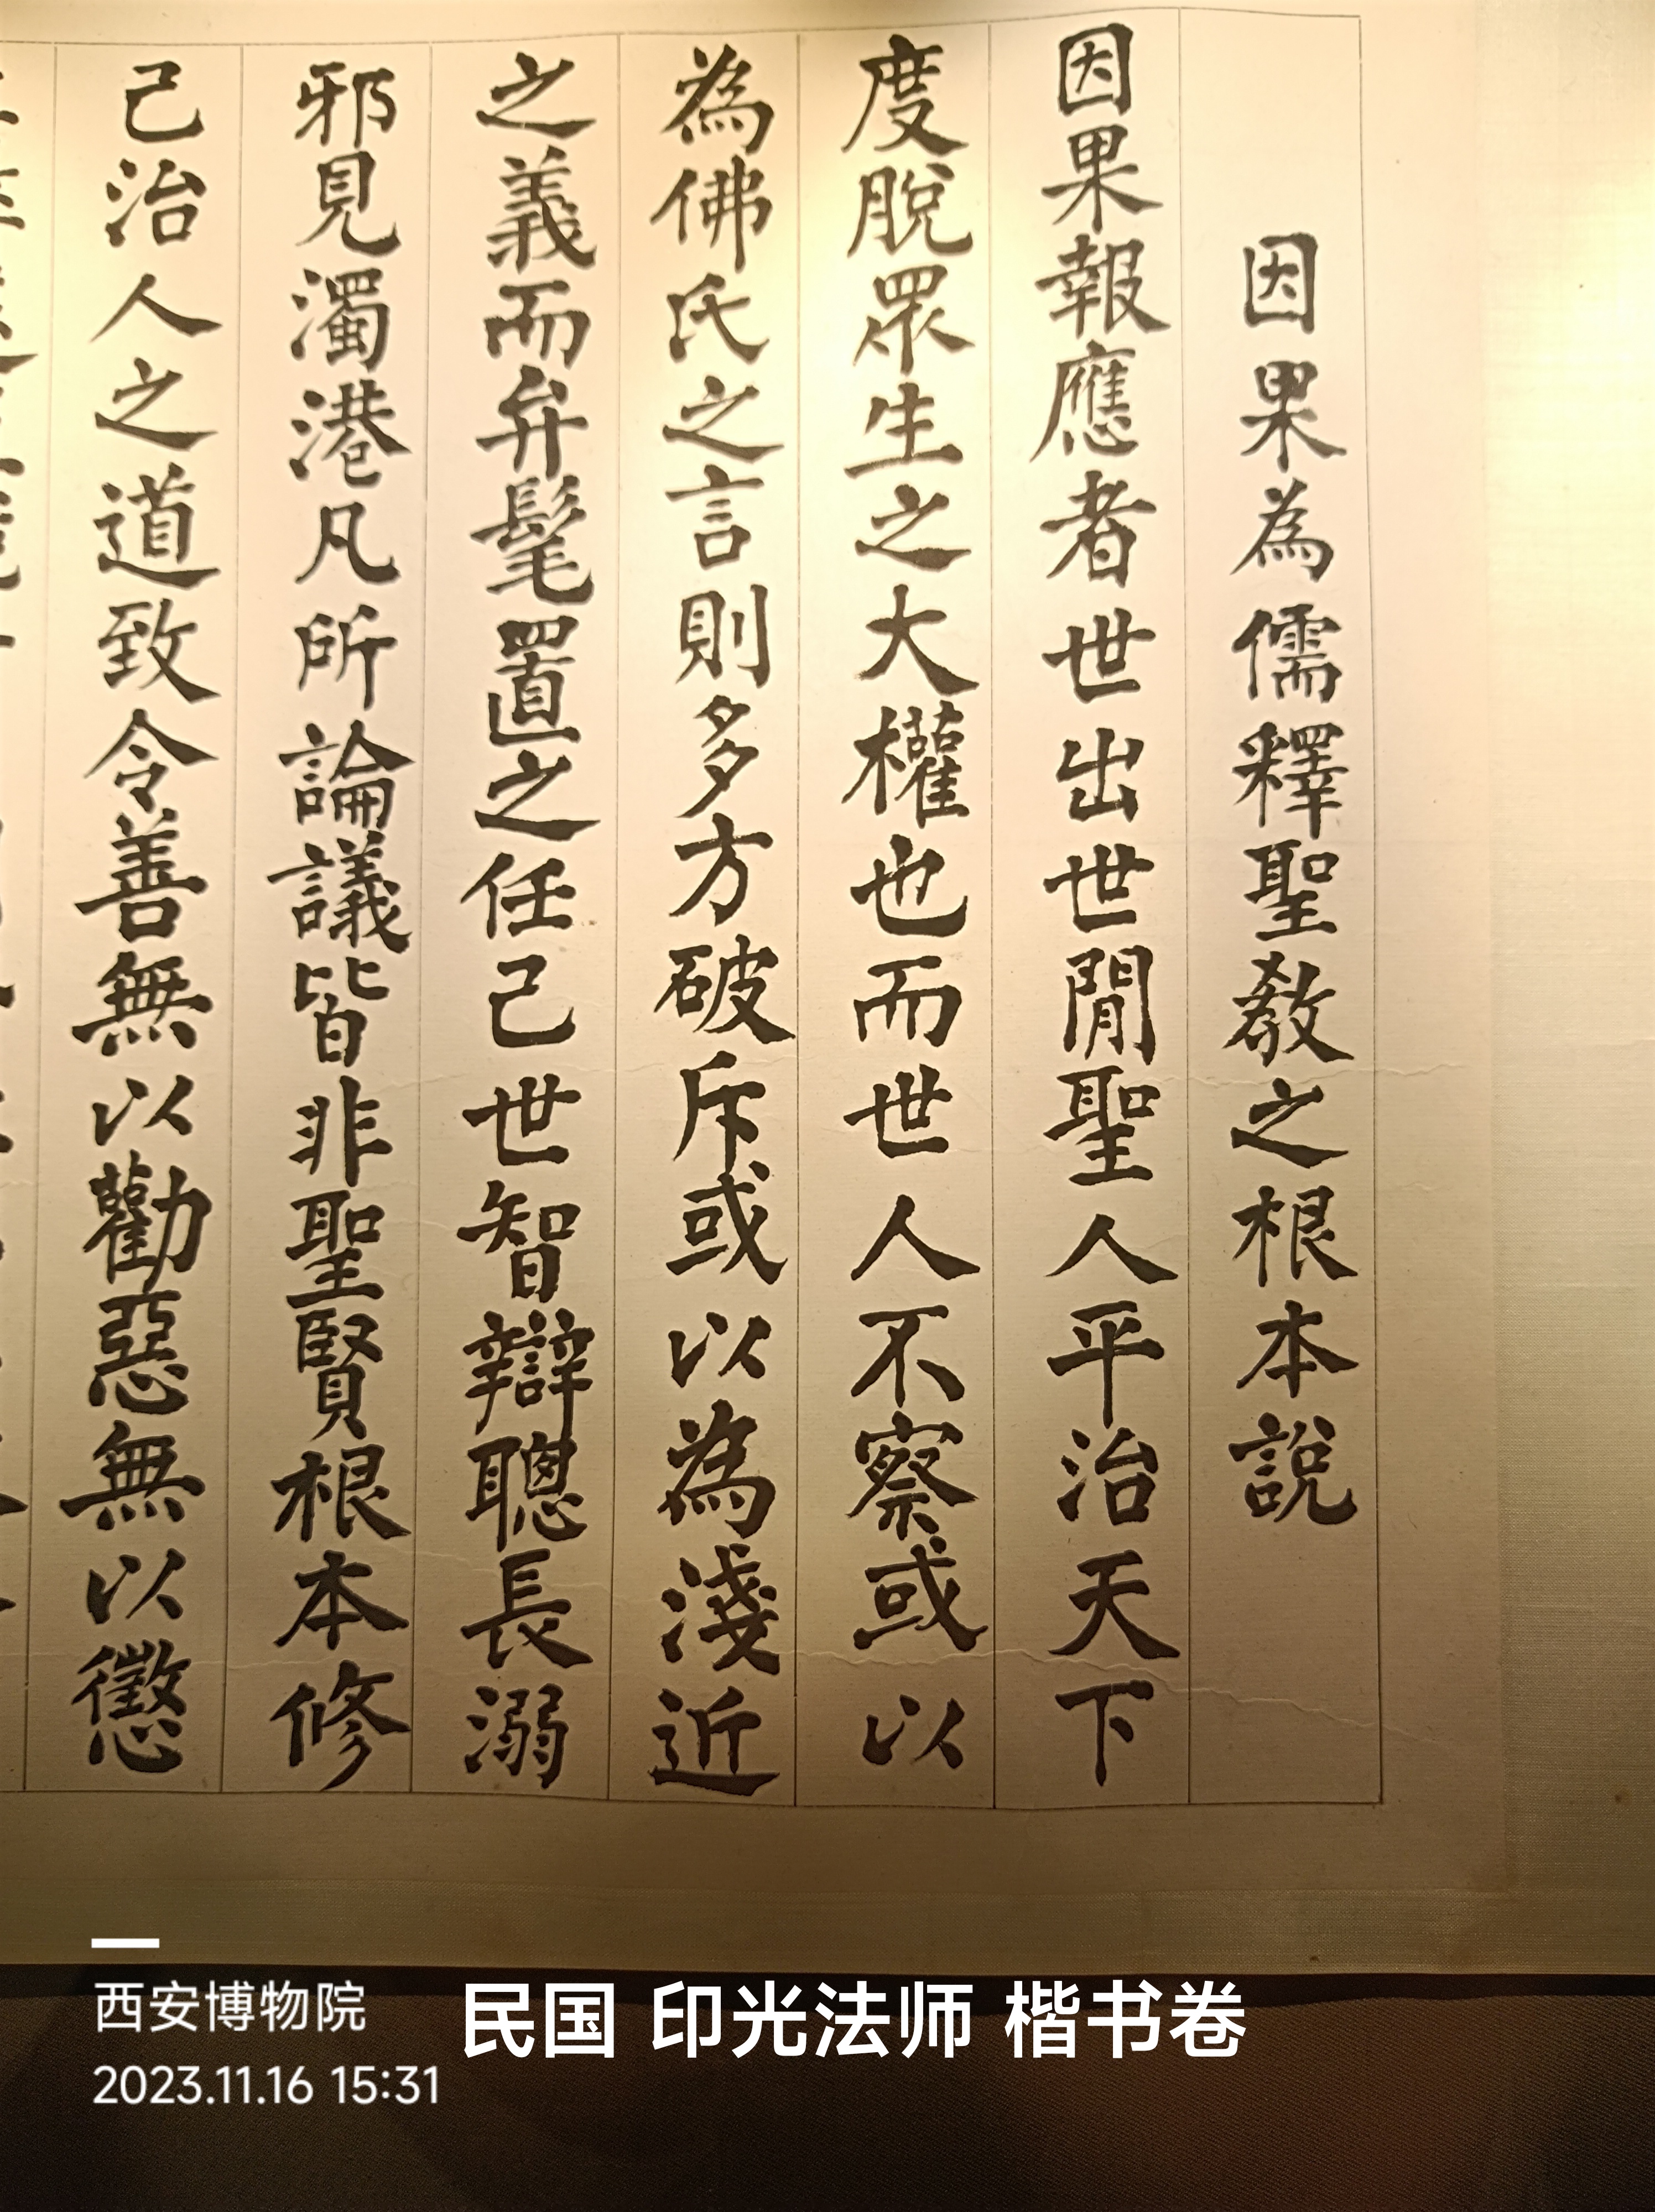 因果為儒釋聖教之根本說
因果報應者世出世間聖人平治天下
度脫眾生之大權也而世人不察或以
為佛氏之言則多方破斥或以為淺近
之義而弁髦置之任己世智辯聰長溺
邪見濁港凡所論議皆非聖賢根本修
己治人之道致令善無以勸惡無以懲
西安博物院
2023.11.16 15:31
民国 印光法师 楷书卷